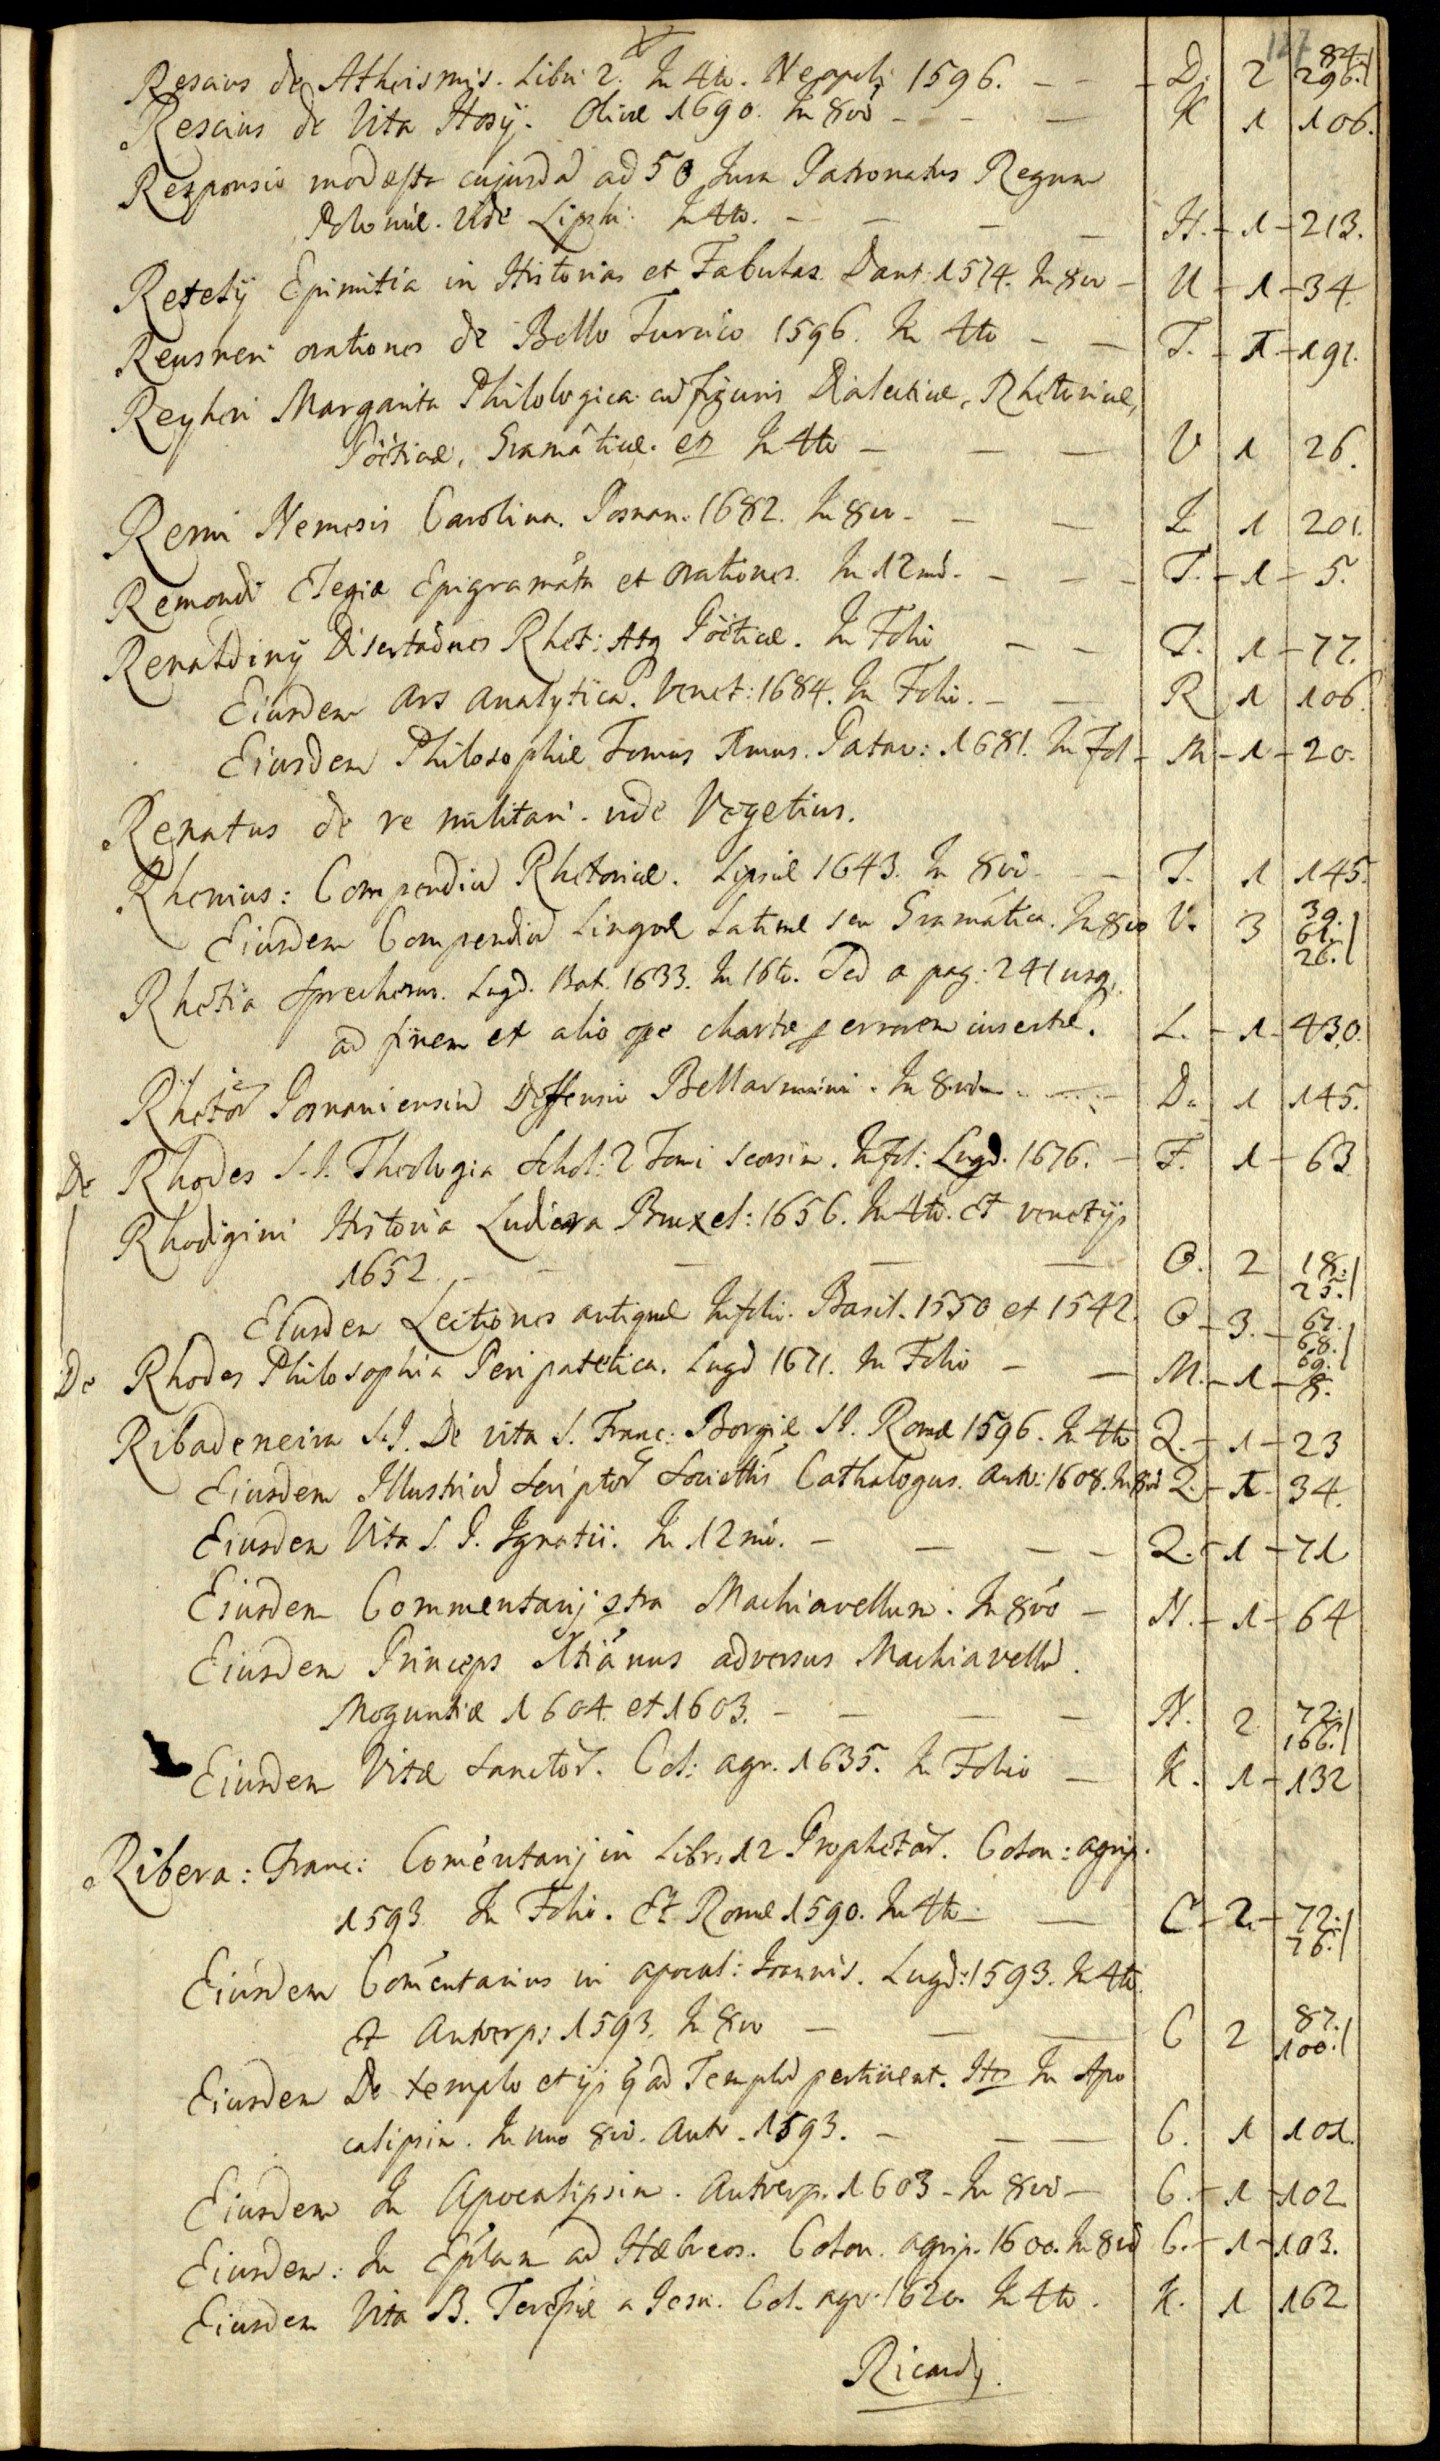 127
Rescius de Atheismis. Libri 2. In 4to. Neapoli 1596. — — D. 2 84. 296.
Rescius de Vita Hosij. Olivæ 1690. In 8vo — — — K 1 106.
Responsio modesta cujusdã ad 50 Jura Patronatus Regum
Poloniæ. Vide Lipski. In 4to. — — — — H. — 1 — 213.
Retelij Epimitia in Historias et Fabulas. Dant. 1574. In 8vo — U — 1 — 34.
Reusneri orationes de Bello Turcico 1596. In 4to — — T. — 1. — 191.
Reyheri Margarita Philologica cũ figuris Dialecticæ, Rhetoricæ,
Pöeticæ, Gramãticæ. etc In 4to — — — V 1 26.
Remi Nemesis Carolina. Posnan. 1682. In 8vo — — — Z 1 201.
Remondi Elegiæ Epigramãta et orationes. In 12mo. — — — T. — 1 — 5.
Renaldinij Disertãones Rhet: Atq Pöeticæ. In Folio — — T. 1 — 77.
Eiusdem Ars Analytica. Venet: 1684. In Folio. — — R 1 106
Eiusdem Philosophiæ Tomus Imus. Patav: 1681. In Fol — M — 1 — 20.
Renatus de re militari. vide Vegetius.
Rhenius: Compendiũ Rhetoricæ. Lipsiæ 1643. In 8vo — — T. 1 145.
Eiusdem Compendiũ Linguæ Latinæ seu Gramãtica. In 8vo V. 3 39. 61. 26.
Rhetia Sprecherus. Lugd. Bat. 1633. In 16to. Sed a pag: 241 usq
ad finem ex alio ope chartæ p errorem insertæ. L. — 1 — 430.
Rhetor Posnaniensiũ Deffensio Bellarmini. In 8vo — — D. 1 145.
De Rhodes S.I. Theologia Schol: 2 Tomi seorsim. In fol: Lugd. 1676. — F. 1 — 63
Rhodigini Historia Ludicra Bruxel: 1656. In 4to. Et Venetijs
1652. — — — — — O. 2 18. 25.
Eiusdem Lectiones antiquæ In folio. Basil. 1550 et 1542. O — 3. — 67. 68. 69.
De Rhodes Philosophia Peripatetica. Lugd 1671. In Folio — — M. — 1 — 8.
Ribadeneira S.I. De vita S. Franc: Borgiæ S.I. Romæ 1596. In 4to Q. — 1 — 23
Eiusdem Illustriũ Scriptor Societtis Cathalogus. Antv: 1608. In 8vo Q. — 1 — 34.
Eiusdem Vita S. P. Ignatii. In 12mo. — — — — Q. — 1 — 71
Eiusdem Commentarij ctra Machiavellum. In 8vo — N. — 1 — 64
Eiusdem Princeps Xtiãnus adversus Machiavellũ.
Moguntiæ 1604. et 1603. — — — — N. 2 72. 166.
Eiusdem Vitæ Sanctor. Col: agr. 1635. In Folio — K. 1 — 132
Ribera: Franc: Comẽntarij in Libr. 12 Prophetar. Colon: agrip.
1593 In Folio. Et Romæ 1590. In 4to — — C — 2. — 72. 76.
Eiusdem Comẽntarius in apocal: Ioannis. Lugd: 1593. In 4to.
et Antverp: 1593. In 8vo — — — C 2 87. 100.
Eiusdem De templo et ijs q ad Templũ pertinent. Itẽ In Apo
calipsin. In uno 8vo. Antv. 1593. — — — C. 1 101.
Eiusdem In Apocalipsin. Antverp. 1603 — In 8vo — C. — 1 — 102
Eiusdem: In Eplam ad Hæbreos. Colon. agrip. 1600. In 8vo C. — 1 — 103.
Eiusdem Vita B. Teresiæ a Iesu. Col. agr. 1620. In 4to. K. 1 162
Ricardij.